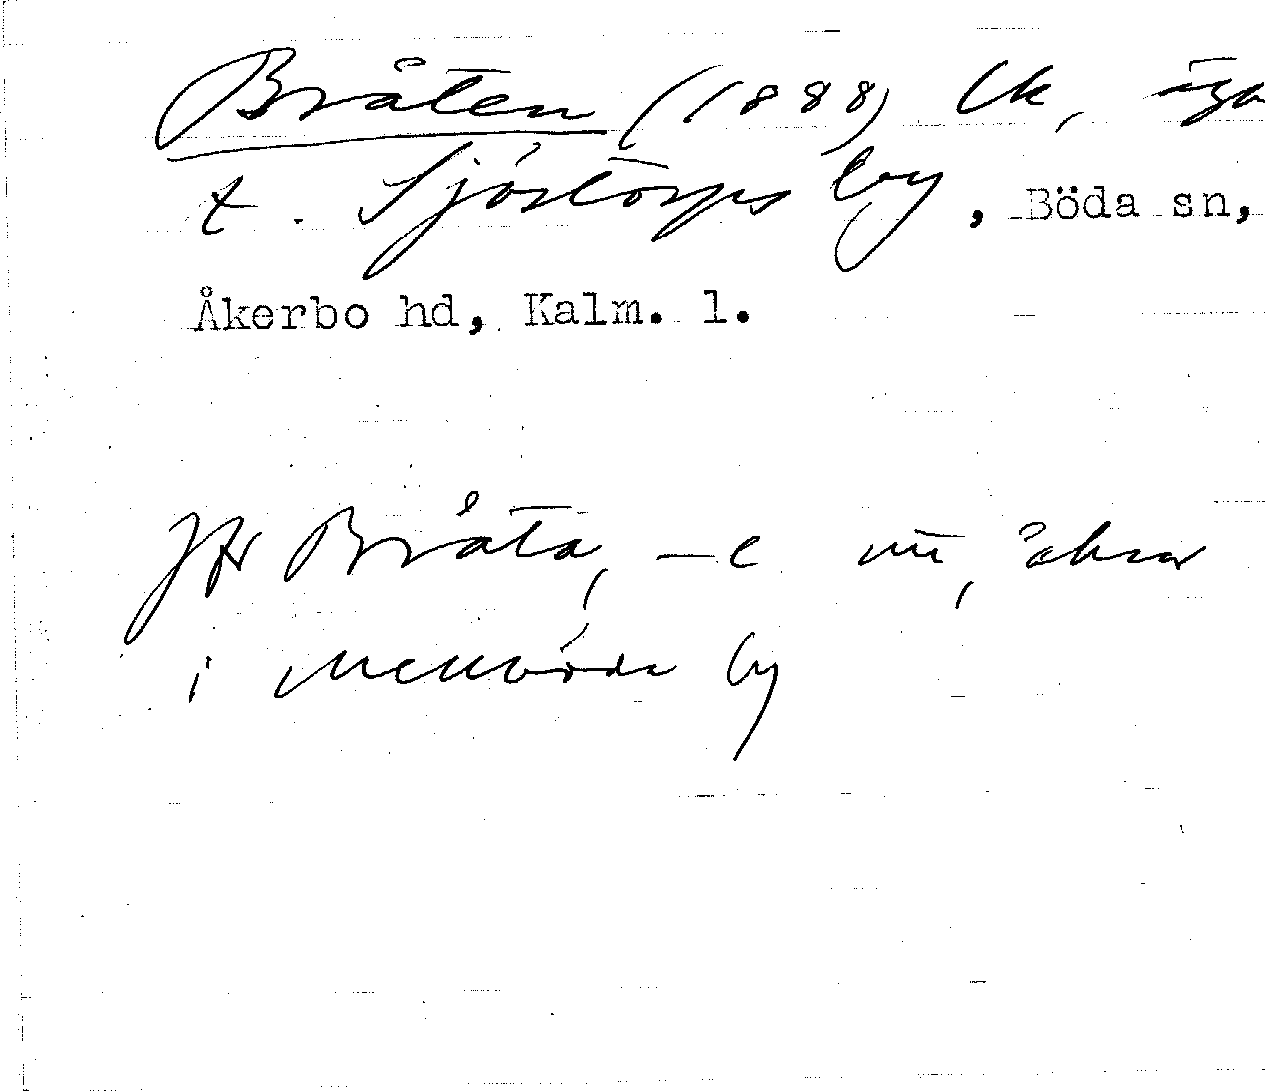 Bråten (1888) lk, äga
t. Sjöstorps by, Böda sn,
Åkerbo hd, Kalm. l.
Jfr Bråta, –e nu, åkrar
i Mellböda by